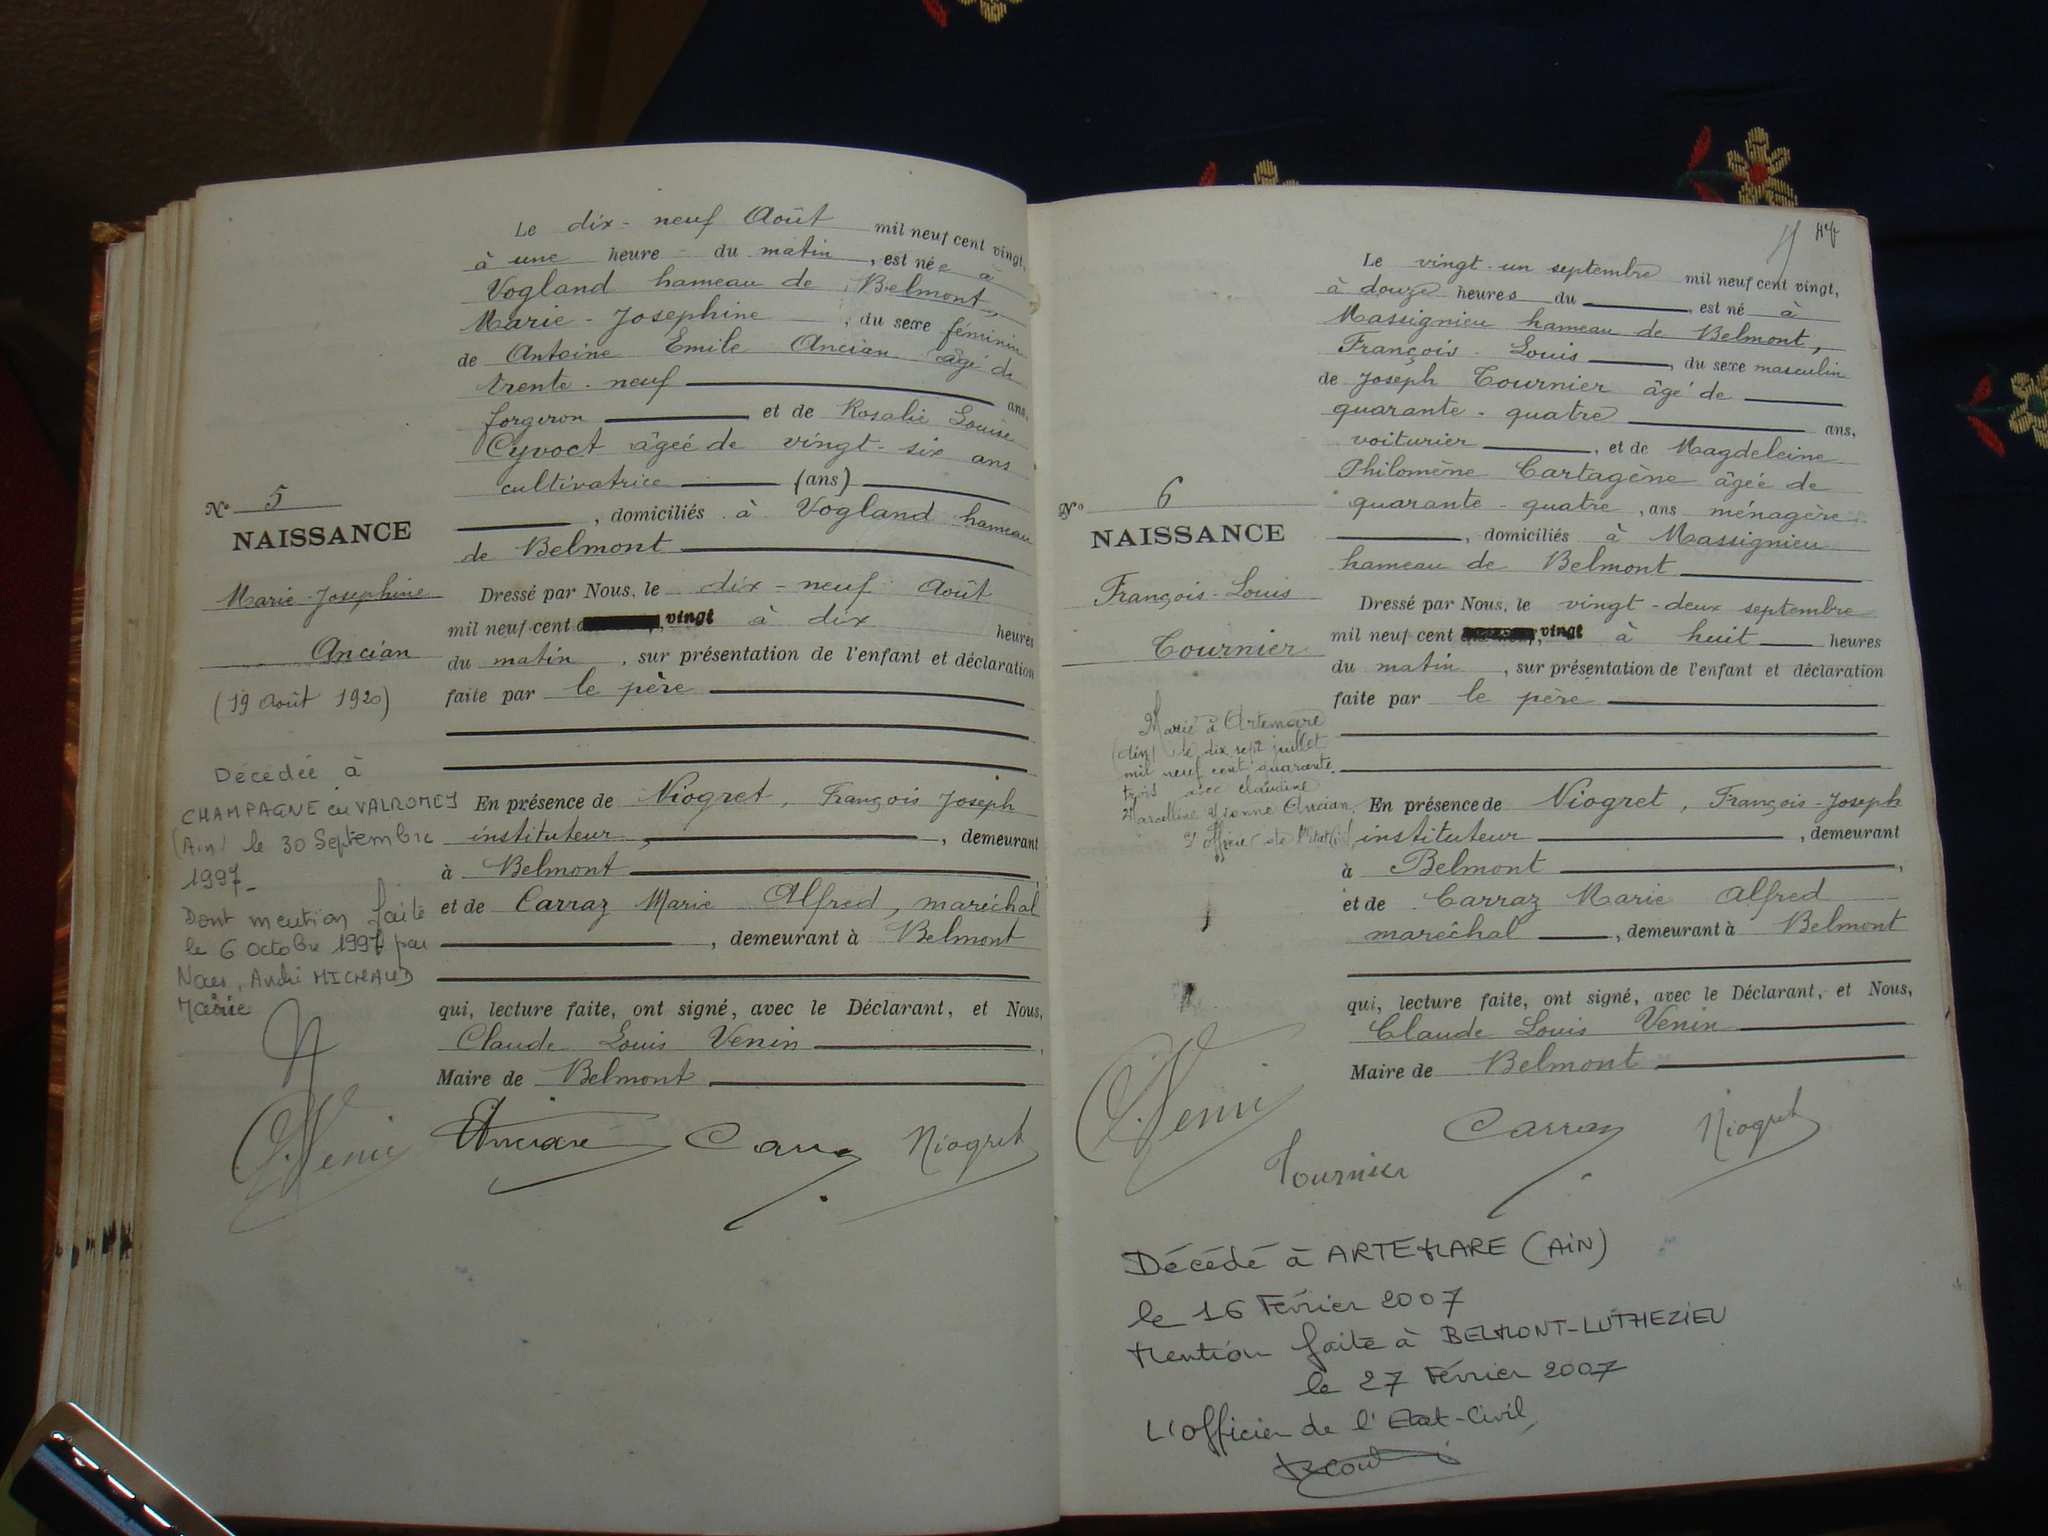 Le dix-neuf Août mil neuf cent vingt,
à une heure du matin, est née à
Vogland hameau de Belmont,
Marie-Josephine, du sexe féminin
de Antoine Emile Ancian âgé de
trente-neuf ans,
forgeron et de Rosalie Louise
Cyvoct âgeé de vingt-six ans
cultivatrice (ans)
, domiciliés à Vogland hameau
de Belmont
Nº 5
NAISSANCE
Marie-Josephine
Ancian
(19 Août 1920)
Dressé par Nous, le dix-neuf Août
mil neuf cent vingt à dix heures
du matin, sur présentation de l'enfant et déclaration
faite par le père
Décédée à
CHAMPAGNE en VALROMEY
(Ain) le 30 Septembre
1997_
Dont mention faite
le 6 Octobre 1997 par
Nous, André MICHAUD
Mairie
En présence de Niogret, François Joseph
instituteur, demeurant
à Belmont,
et de Carraz Marie Alfred, maréchal
, demeurant à Belmont
qui, lecture faite, ont signé, avec le Déclarant, et Nous,
Claude Louis Venin,
Maire de Belmont
C. Venin Ancian Carraz Niogret
Le vingt-un septembre mil neuf cent vingt,
à douze heures du, est né à
Massignieu hameau de Belmont,
François-Louis, du sexe masculin
de Joseph Tournier âgé de
quarante-quatre ans,
voiturier, et de Magdeleine
Philomène Cartagène âgée de
quarante-quatre, ans ménagère
, domiciliés à Massignieu
hameau de Belmont
Nº 6
NAISSANCE
François-Louis
Tournier
Dressé par Nous, le vingt-deux septembre
mil neuf cent vingt à huit heures
du matin, sur présentation de l'enfant et déclaration
faite par le père
Marié à Artemare
(Ain) le dix sept juillet
mil neuf cent quarante
trois avec Claudine
Marcelline Yvonne Ancian.
l'Officier de l'état civil
En présence de Niogret, François-Joseph
instituteur, demeurant
à Belmont,
et de Carraz Marie Alfred
maréchal, demeurant à Belmont
qui, lecture faite, ont signé, avec le Déclarant, et Nous,
Claude Louis Venin
Maire de Belmont
C. Venin Tournier Carraz Niogret
Décédé à ARTEMARE (AiN)
le 16 Février 2007
Mention faite à BELMONT-LUTHEZIEU
le 27 Février 2007
L'officier de l'Etat-Civil,